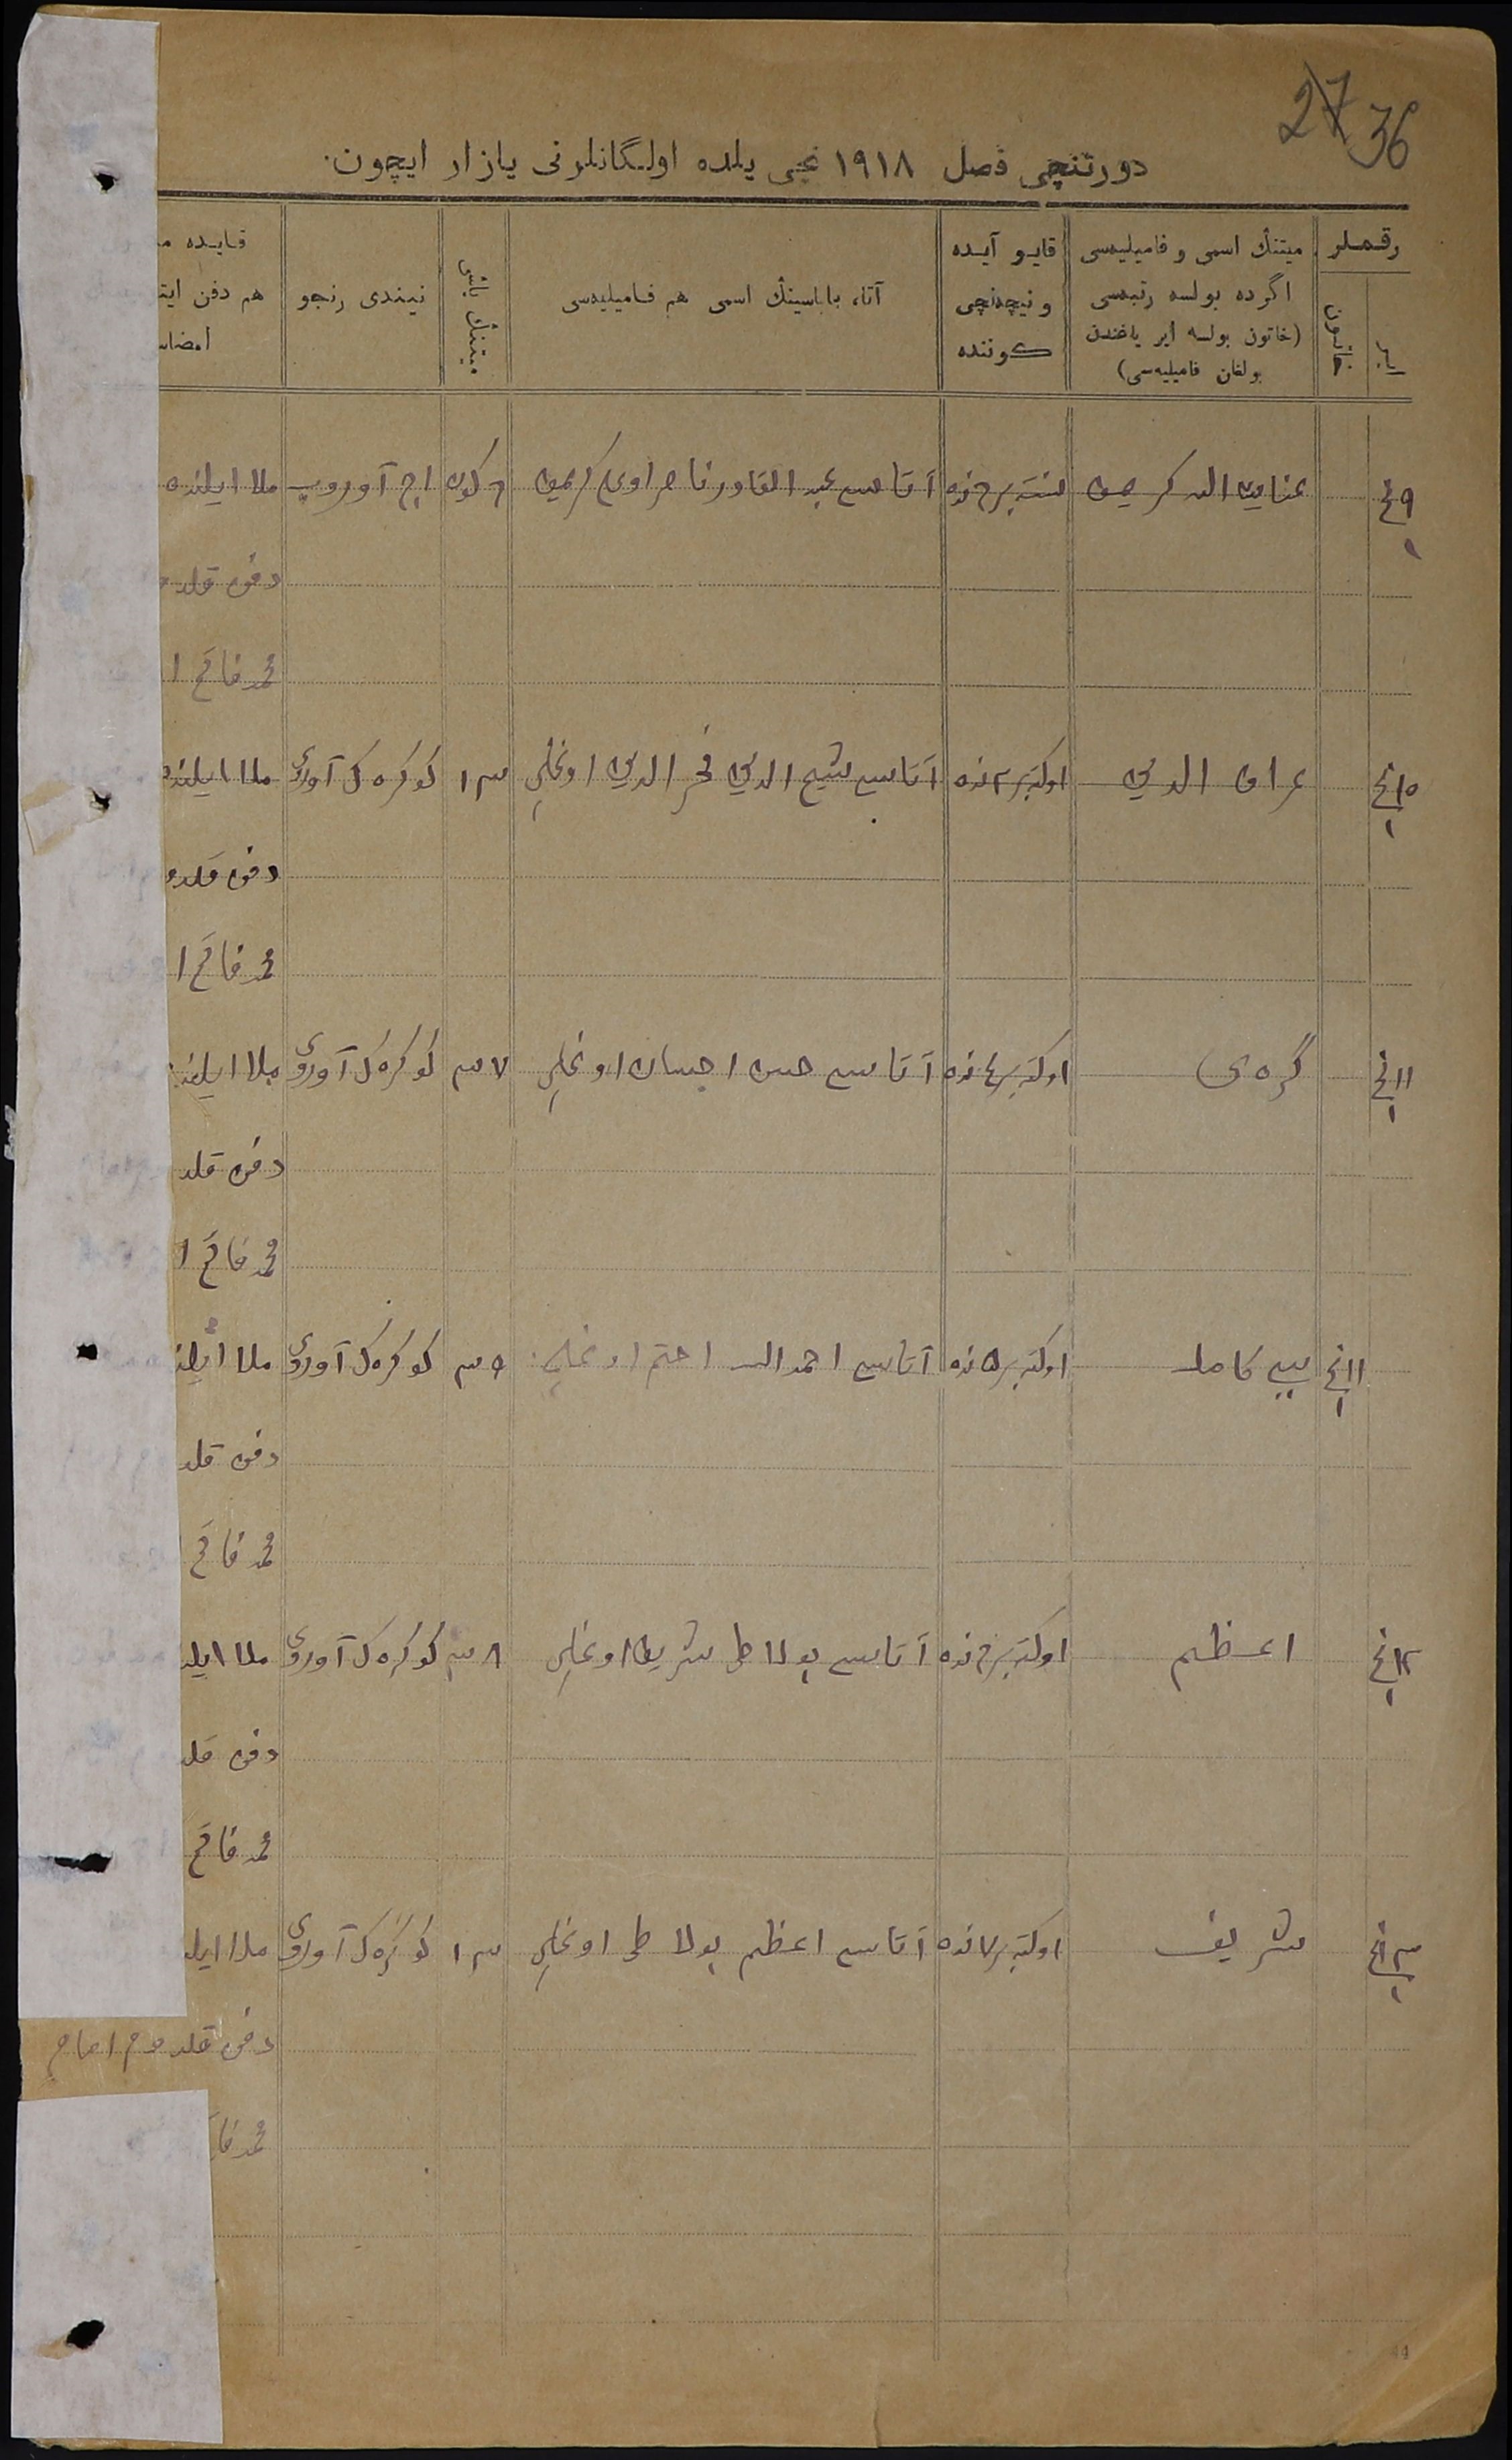 27 36
دورتنچی فصل ۱۹۱۸ نچی یلده اولگانلرنی یازار ایچون.
رقملر
ایر
خاتون
میتنڭ اسمی و فامیلیه‌سی اگرده بولسه رتبه‌سی (خاتون بولسه ایر یاغندن بولغان فامیلیه‌سی)
قایو آیده و نیچه‌نچی کوننده
آتا، باباسینڭ اسمی هم فامیلیه‌سی
میتنڭ یاشی
نیندی رنجو
فایده م
هم دفن ایت
امضاس
۹نچ عنایت الله کریمف آتاسی عبد القادر کریمف ۶ کون اچ آورویی ملا ایلنده
دفن قلد
محمد فاتح ا
۱۰نچ اوکتبر ۲نده آتاسی شیخ الدین فخر الدین اوغلی ۱ کوکرەک آوروی ملا ایلنده
دفن قلدو
محمد فاتح ا
۱۱نچ گرەی اوکتبر ۴نده آتاسی حسن احسان اوغلی ۷ کوکرەک آوروی ملا ایلند
دفن قلد
محمد فاتح ا
۱۱نچ بی بی کامله اوکتبر ۵نده آتاسی احمد الله اوغلی ۹ کوکرەک آوروی ملا ایلند
دفن قلد
محمد فاتح
۱۲نچ اعظم اوکتبر ۶نده آتاسی بولاط شریف اوغلی ۸ کوکرەک آوروی ملا ایلد
دفن قلد
محمد فاتح
۱۳نچ شریف اوکتبر ۷نده آتاسی اعظم بولاط اوغلی ۱ کوکرەک آوروی ملا ایلد
دفن قلدوم امام
محمد فا
44